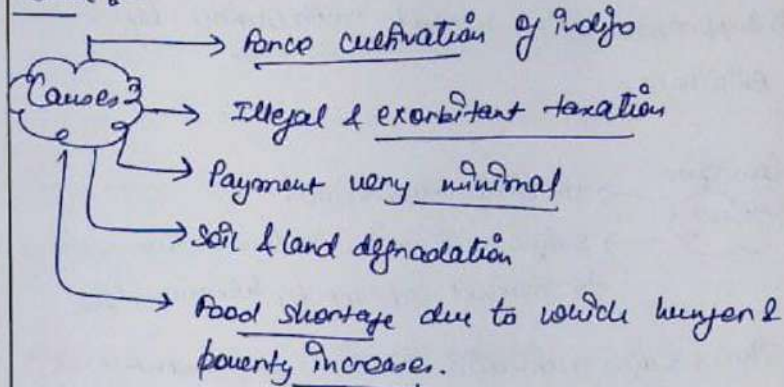 Force cultivation of indigo
Causes
Illegal & exorbitant taxation
Payment very minimal
Soil & land degradation
Food shortage due to which hunger &
poverty increases.